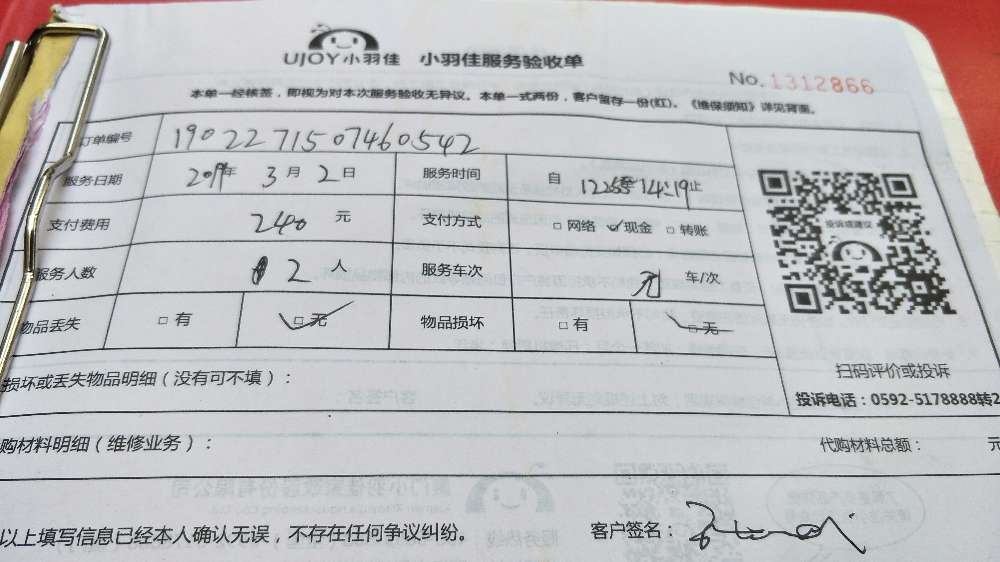 UJOY小羽佳 小羽佳服务验收单
No.1312866
本单一经核签，即视为对本次服务验收无异议。本单一式两份，客户留存一份(红)。《维保须知》详见背面。
订单编号 1902271507460542
服务日期 2019年 3月 2日 服务时间 自 14:19止
支付费用 240 元 支付方式 □ 网络 ☑ 现金 □ 转账
服务人数 2 人 服务车次 车/次
物品丢失 □ 有 ☑ 无 物品损坏 □ 有 ☑ 无
投诉或建议
扫码评价或投诉
投诉电话：0592-5178888转2
损坏或丢失物品明细（没有可不填）：
购材料明细（维修业务）： 代购材料总额： 元
以上填写信息已经本人确认无误，不存在任何争议纠纷。 客户签名：